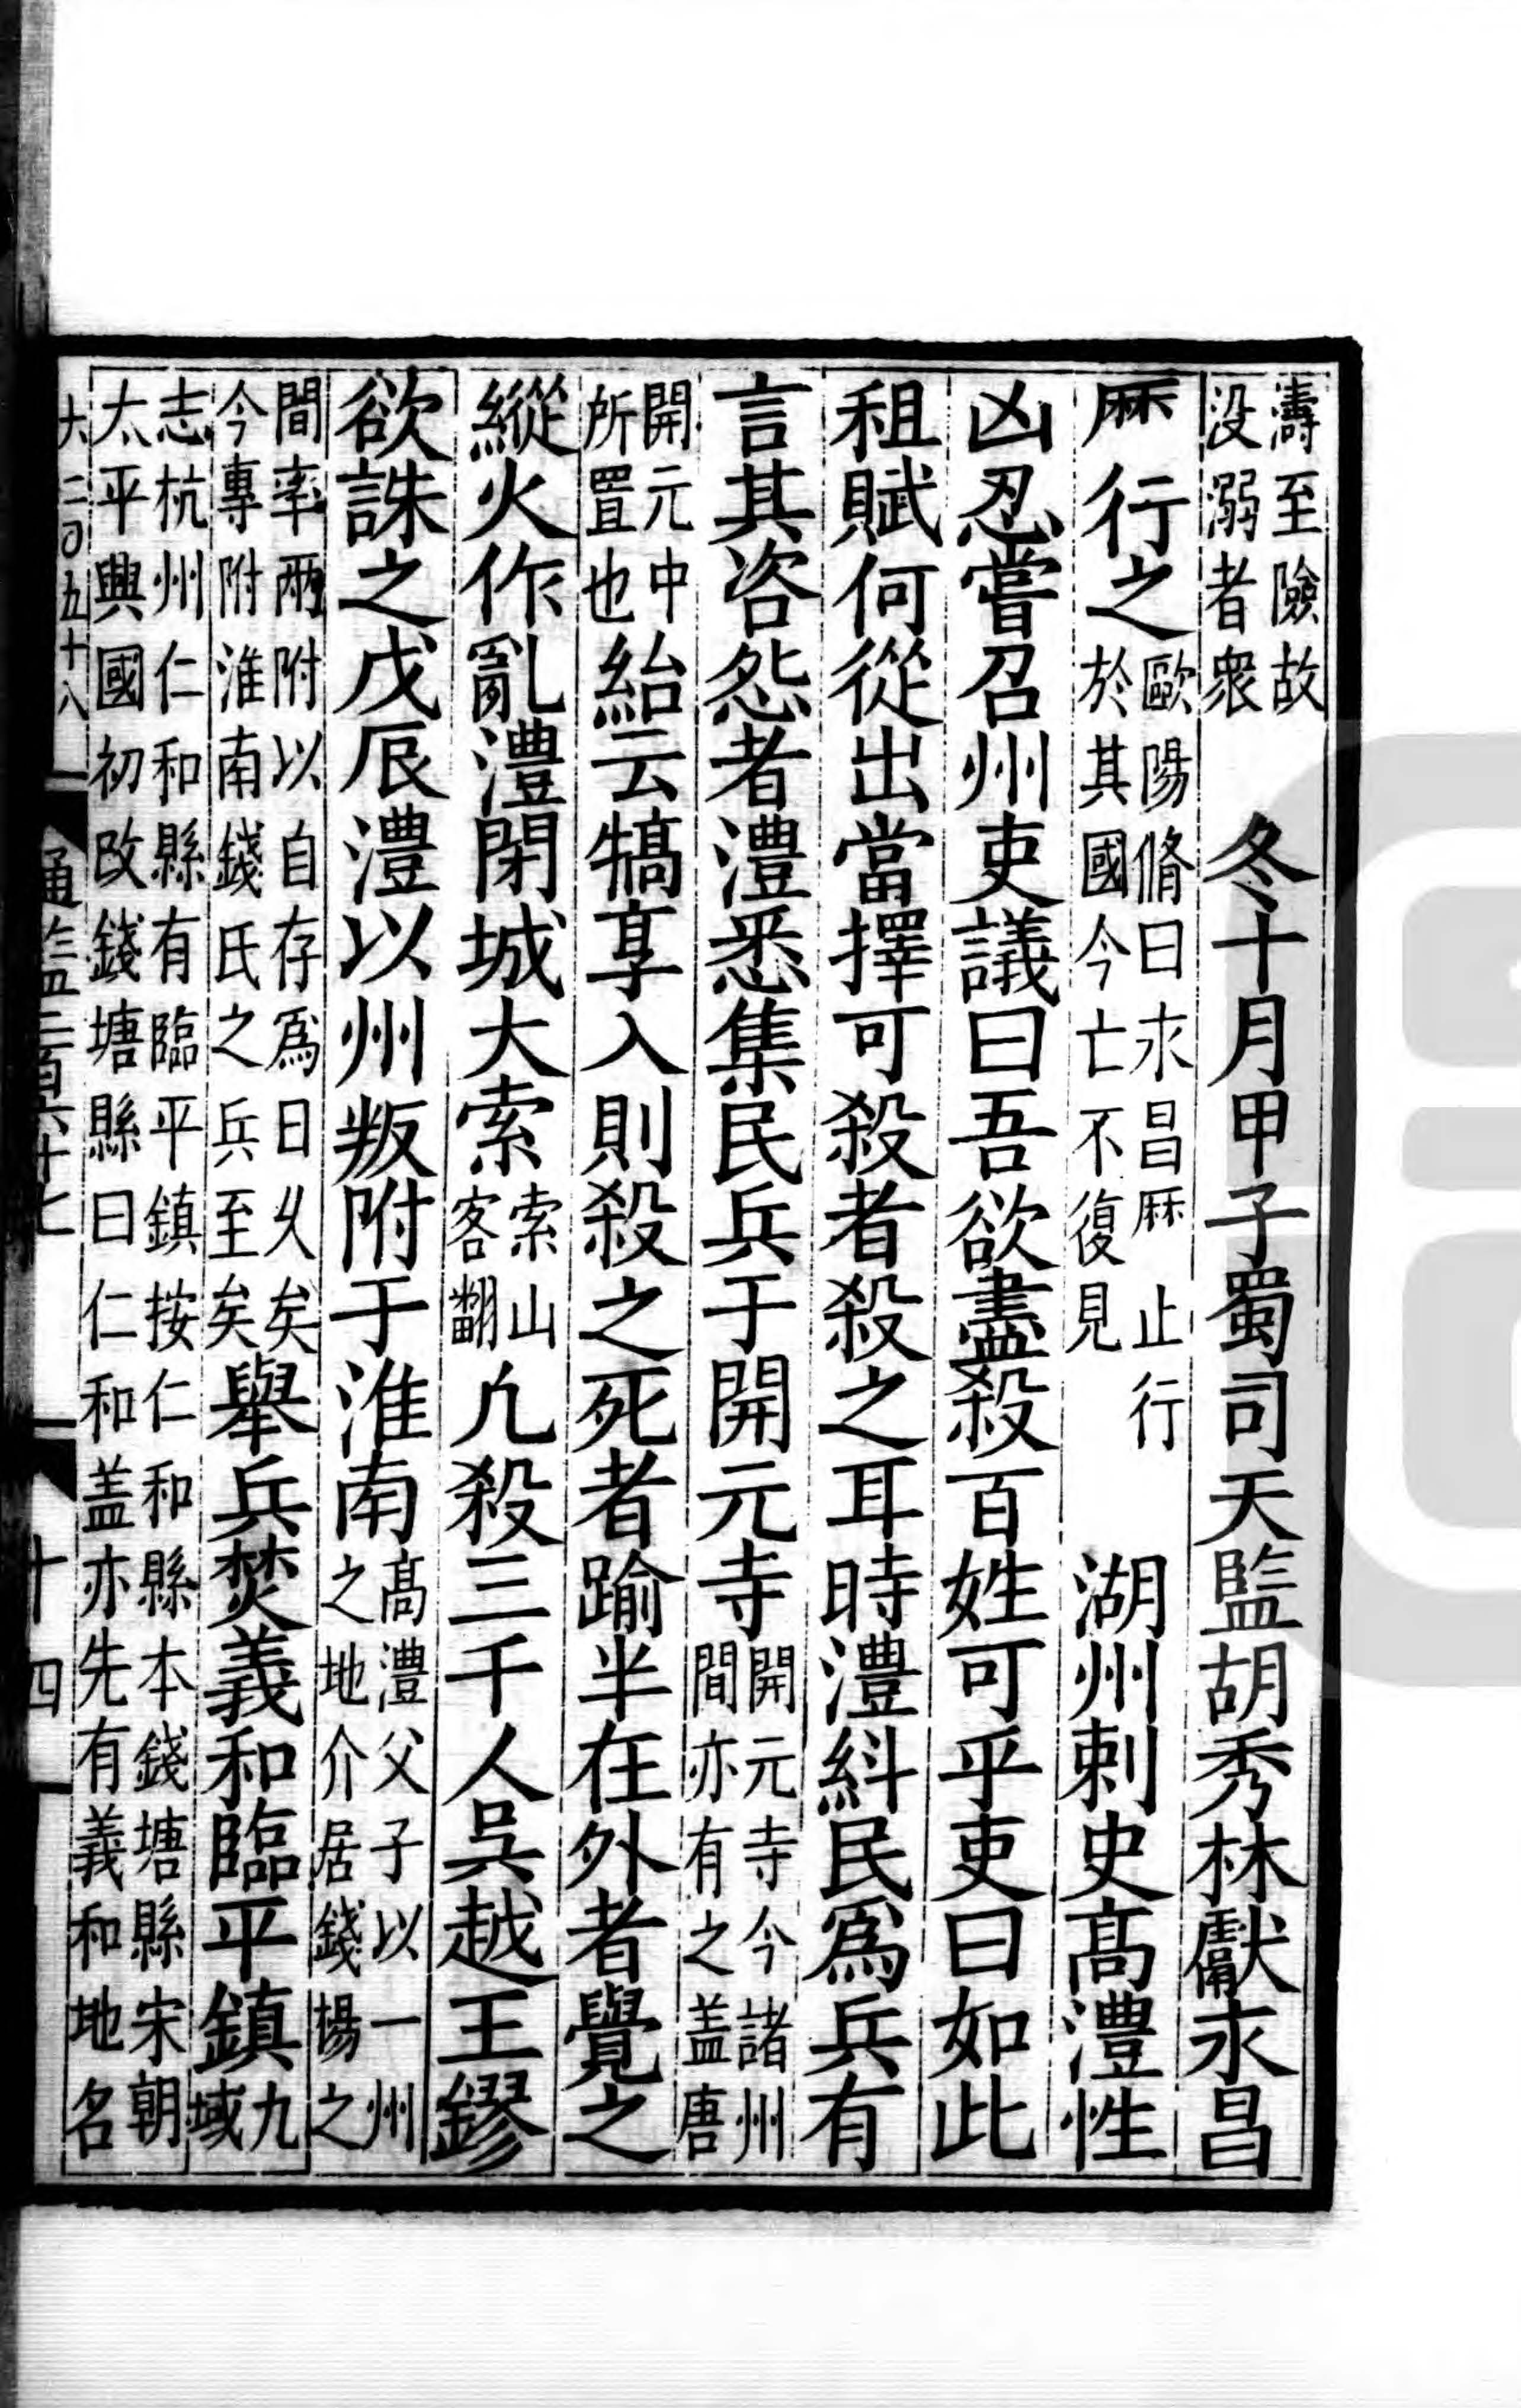 濤至險故没溺者衆　冬十月甲子蜀司天監胡秀林獻永昌
厤行之歐陽脩曰永昌厤止行於其國今亡不復見　湖州刺史高澧性
凶忍嘗召州吏議曰吾欲盡殺百姓可乎吏曰如此
租賦何從出當擇可殺者殺之耳時澧糾民爲兵有
言其咨怨者澧悉集民兵于開元寺開元寺今諸州間亦有之盖唐
開元中所置也紿云犒享入則殺之死者踰半在外者覺之
縱火作亂澧閉城大索索山客翻凡殺三千人吳越王鏐
欲誅之戊辰澧以州叛附于淮南高澧父子以一州之地介居錢楊之
間率兩附以自存爲日久矣今專附淮南錢氏之兵至矣舉兵焚義和臨平鎮九域
志杭州仁和縣有臨平鎮按仁和縣本錢塘縣宋朝太平興國初改錢塘縣曰仁和盖亦先有義和地名
通監二百六十七
十四